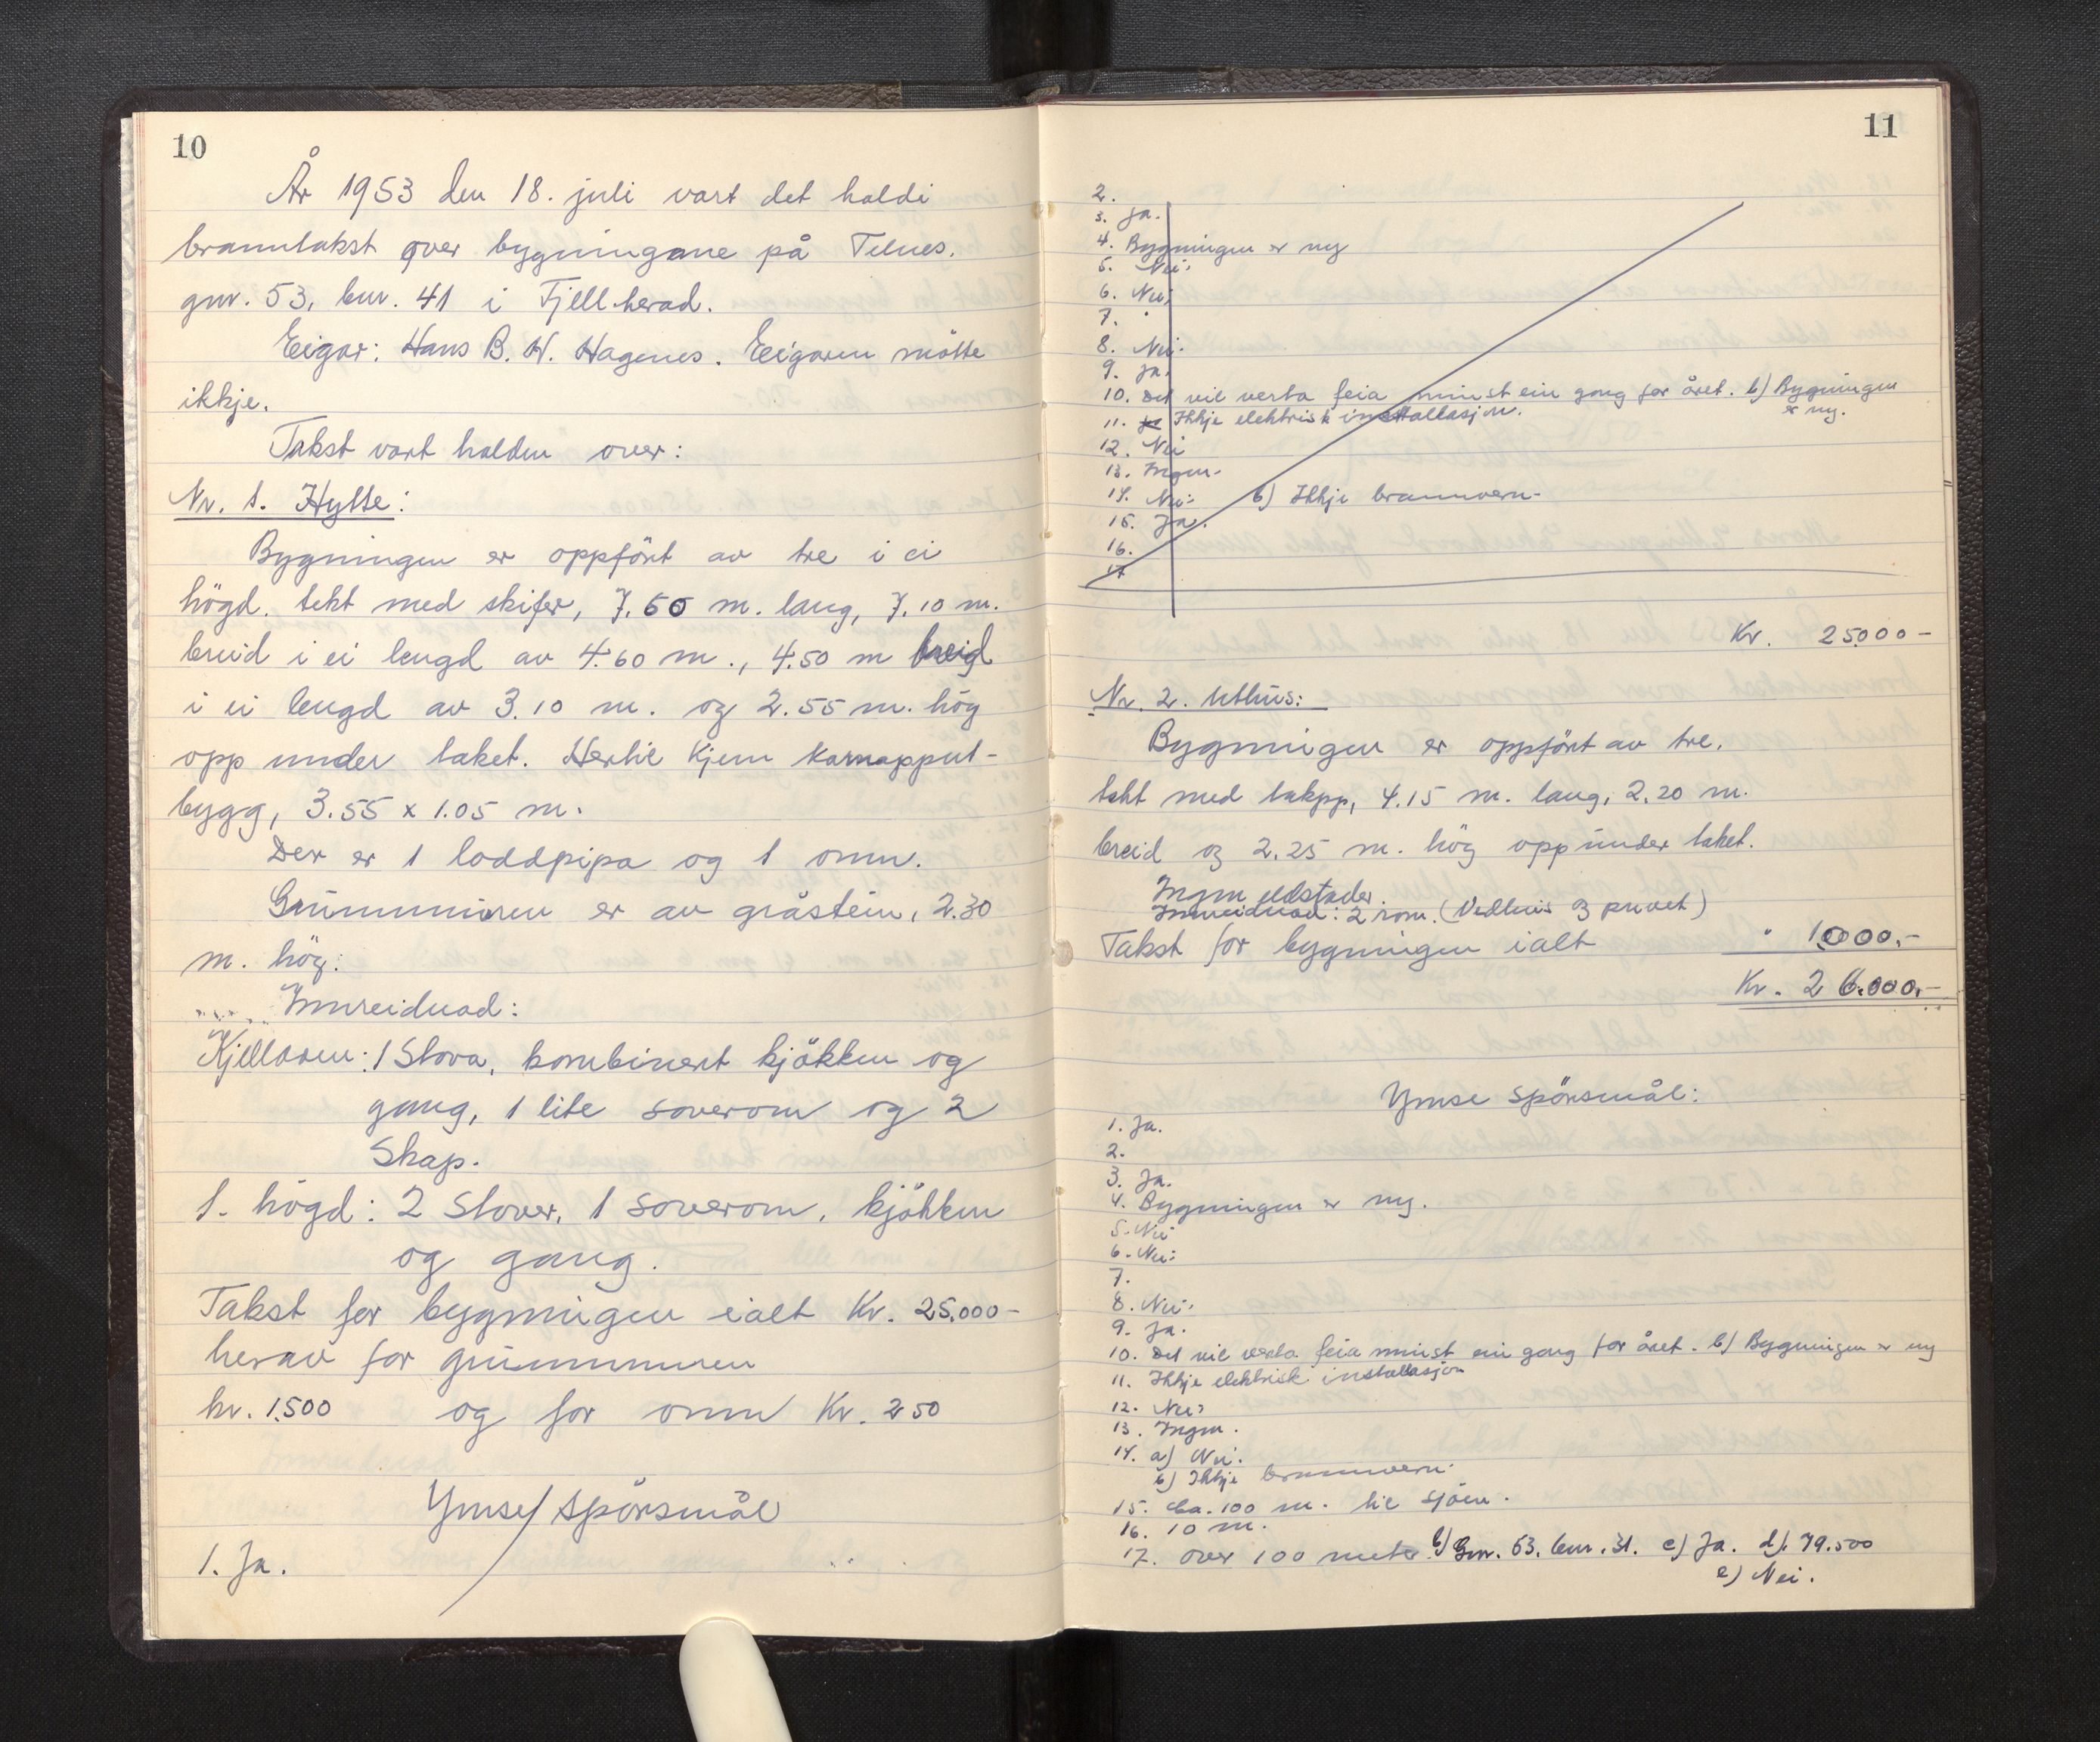 10
År 1953 den 18. juli vart det haldi
branntakst over bygningane på Telnes.
gnr. 53, bnr. 41 i Fjell herad.
Eigar: Hans B. H. Hagenes. Eigaren møtte
ikkje.
Takst vart halden over:
Nr. 1. Hytte:
Bygningen er oppført av tre i ei
högd. tekt med skifer, 7.50 m. lang, 7.10 m.
breid i ei lengd av 4.60 m., 4.50 m breid
i ei lengd av 3.10 m. og 2.55 m. hög
opp under taket. Hertil kjem karnapput-
bygg, 3.55 x 1.05 m.
Der er 1 loddpipa og 1 omn.
Grunnmuren er av gråstein, 2.30
m. hög.
Innreidnad:
Kjellaren: 1 Stova, kombinert kjökken og
gang, 1 lite soverom og 2
Skap.
1. högd: 2 Stover, 1 soverom, kjökken
og gang.
Takst for bygningen ialt Kr. 25.000-
herav for grunnmuren
kr. 1.500 og for omn Kr. 250
Ymse spörsmål
1. Ja.
11
2.
3. Ja.
4. Bygningen er ny
5. Nei.
6. Nei.
7.
8. Nei.
9. Ja.
10. Det vil verta feia minst ein gang for året. b) Bygningen
er ny.
11. Ikkje elektrisk installasjon.
12. Nei
13. Ingen.
14. Nei. b) Ikkje brannvern.
15. Ja.
16.
17
Kr. 25000-
Nr. 2. Uthus:
Bygningen er oppført av tre.
tekt med takpp, 4.15 m. lang, 2.20 m.
breid og 2.25 m. hög opp under taket.
Ingen eldstader.
Innreidnad: 2 rom. (Vedhus og privet)
Takst for bygningen ialt " 1000.-
Kr. 26.000.-
Ymse spörsmål:
1. Ja.
2.
3. Ja.
4. Bygningen er ny.
5. Nei
6. Nei.
7.
8. Nei.
9. Ja.
10. Det vil verta feia minst ein gang for året. b) Bygningen er ny
11. Ikkje elektrisk installasjon
12. Nei
13. Ingen.
14. a) Nei.
b) Ikkje brannvern.
15. Ca. 100 m. til sjöen.
16. 10 m.
17. over 100 meter b) Gnr. 53. bnr. 31. c) Ja. d). 79.500
e) Nei.